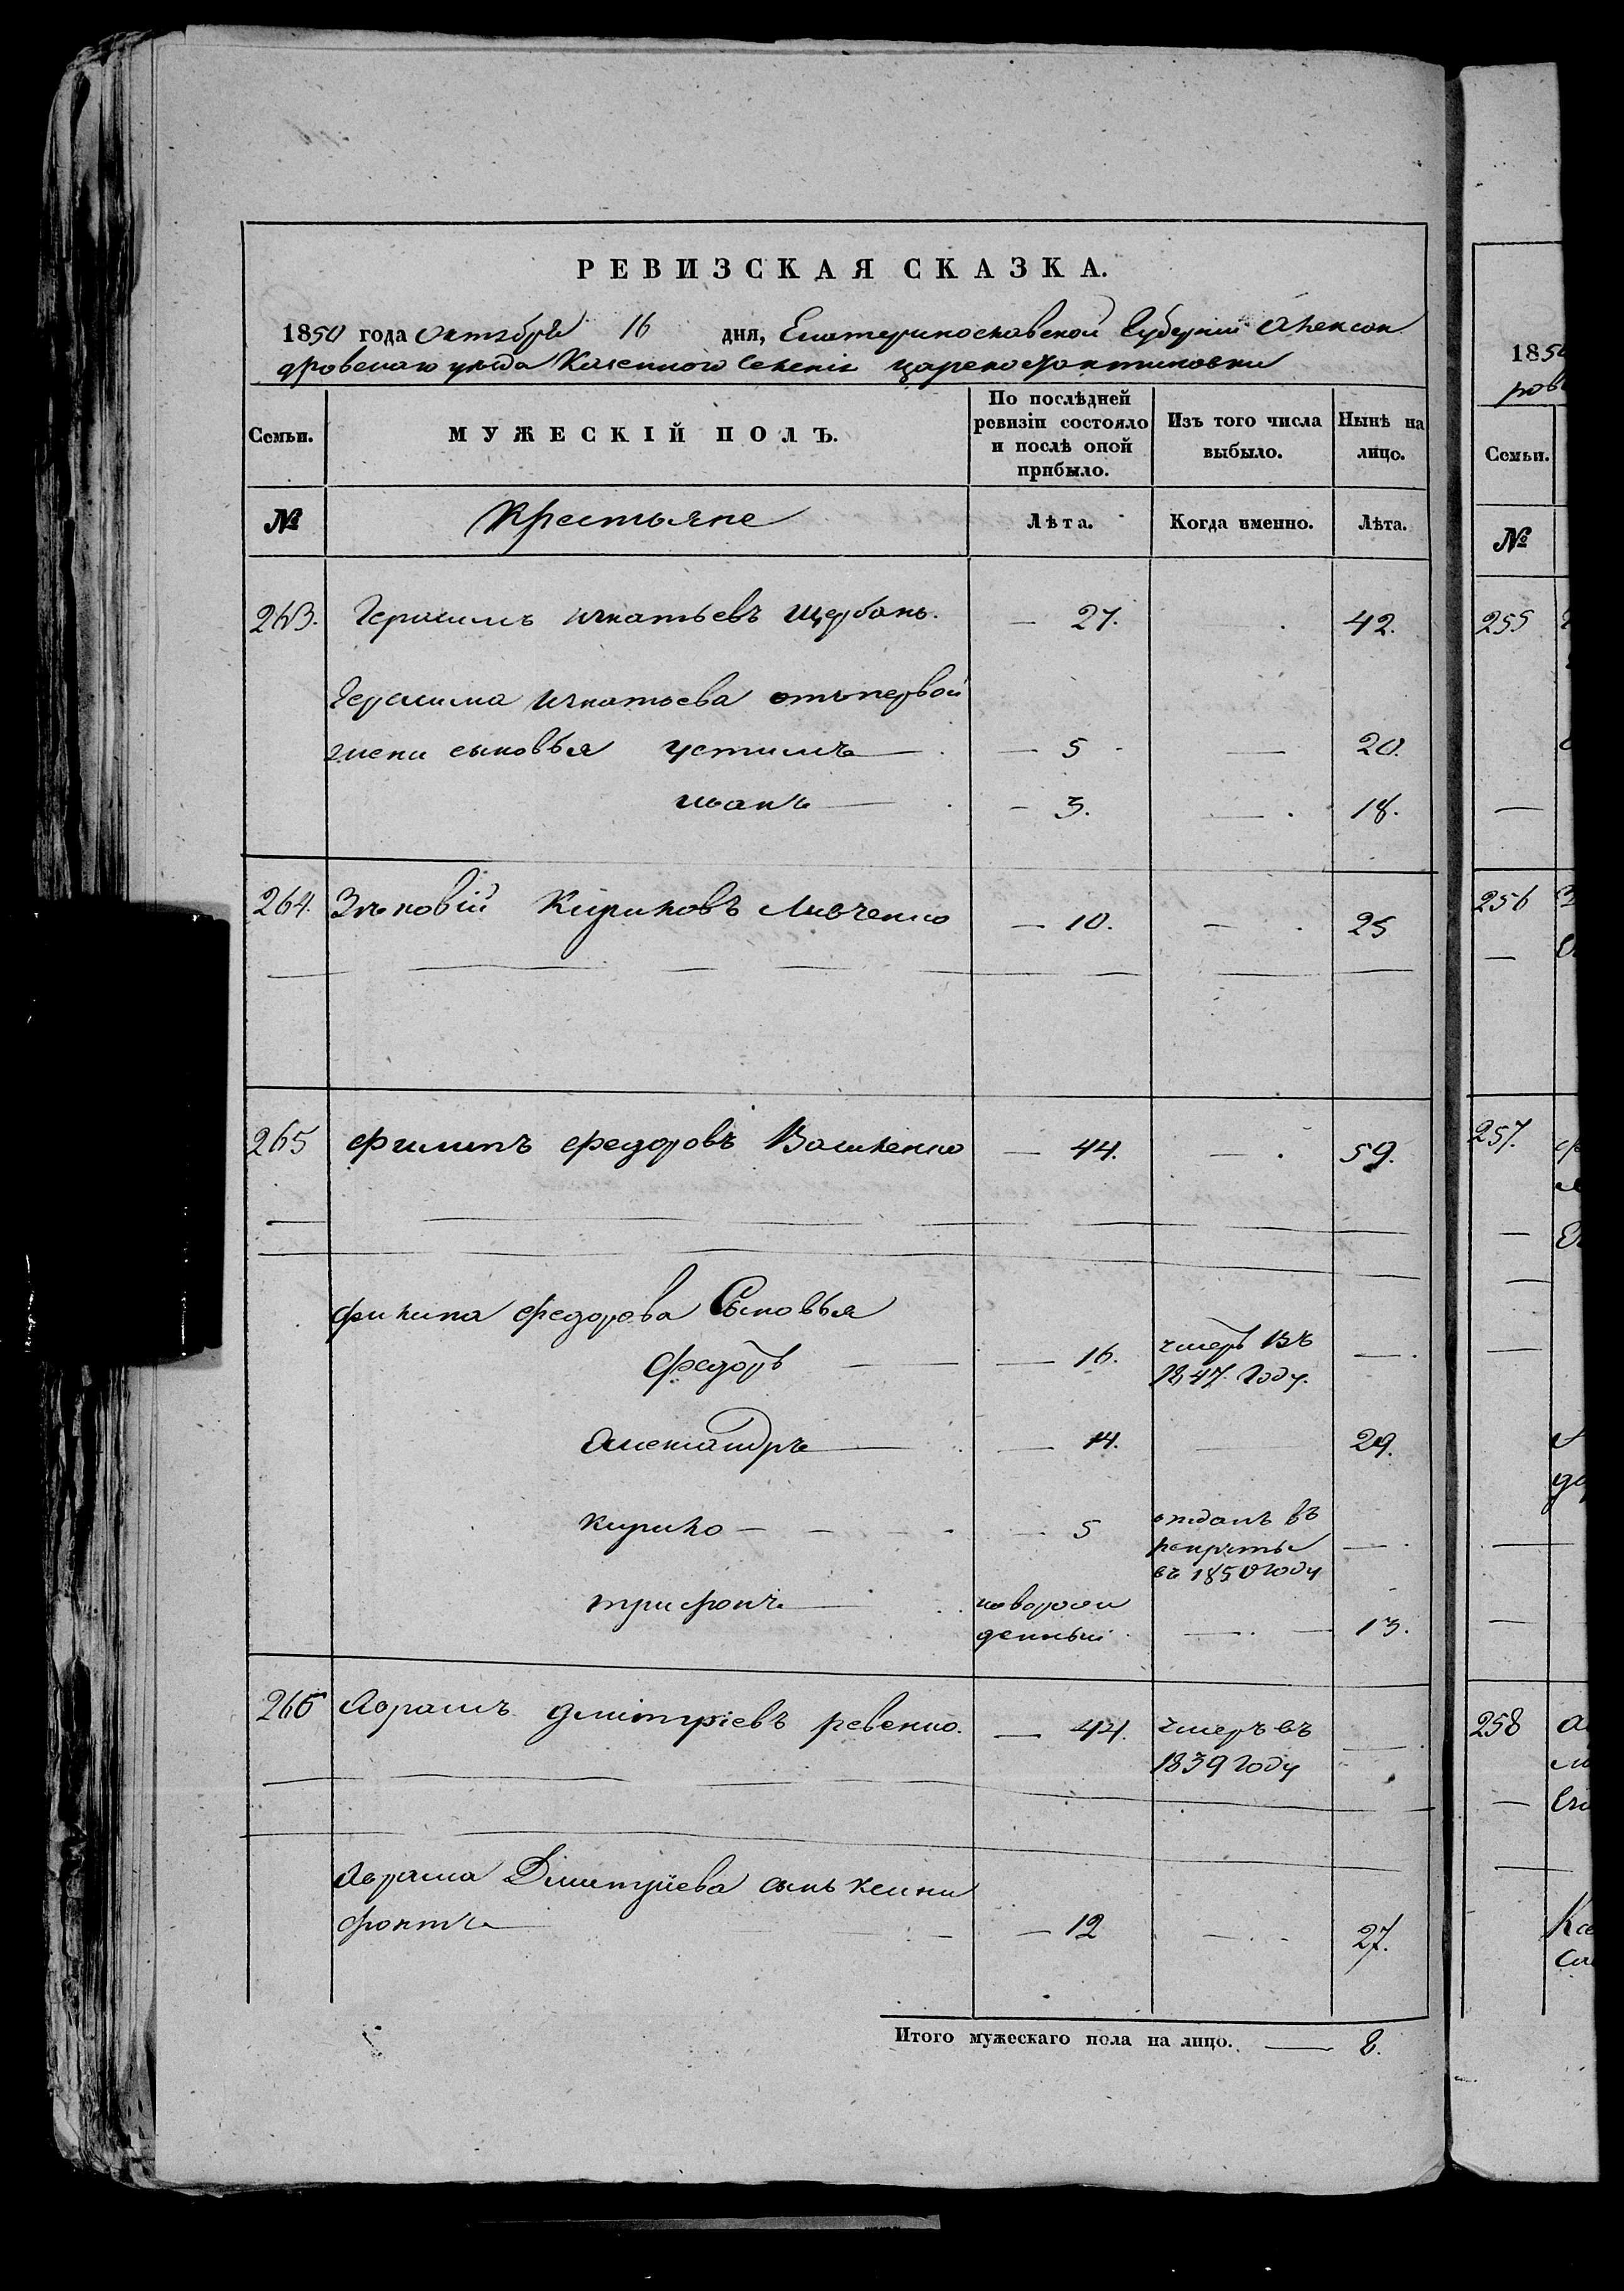 РЕВИЗСКАЯ СКАЗКА.
1850 года Октября 16 дня, Екатеринославской Губернии Алексан
дровскаго уѣзда Казенного Селенія Царекостантиновки
Семьи. МУЖЕСКІЙ ПОЛЪ. По послѣдней ревизіи состояло и послѣ оной прибыло. Изъ того числа выбыло. Нынѣ на лицо.
№ Крестьяне Лѣта. Когда именно. Лѣта.
263. Герасимъ Игнатьевъ Щербань. — 27. — 42.
Герасима Игнатьева отъ первой
жени сыновья Устимъ — 5 — 20.
Иванъ — 3. — 18.
264. Зѣновій Кириловъ Левченко — 10. — 25
265 Филипъ Федоровъ — 44. — 59.
Филипа Федорова Сыновья
Федоръ — 16. умеръ въ 1847 Году. —
Александръ — 14. — 29.
Кирило — 5 отданъ въ рекруты въ 1850 году —
Трифонъ — новорож
денный — 13.
266 Аврамъ Дмитріевъ Ревенко. — 44. умеръ въ
1839 году —
Аврама Дмитріева сынъ Ксени
фонтъ — 12 — 27.
Итого мужескаго пола на лицо. — 8.
1850
ров
Семьи.
№
255
256
257.
258